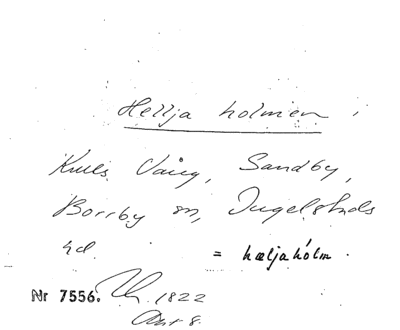 Hellja holmen i
Knuts Vång, Sandby,
Borrby sn, Ingelstads
hd. = hæljahólm.
Nr 7556. 1822
Akt 8.